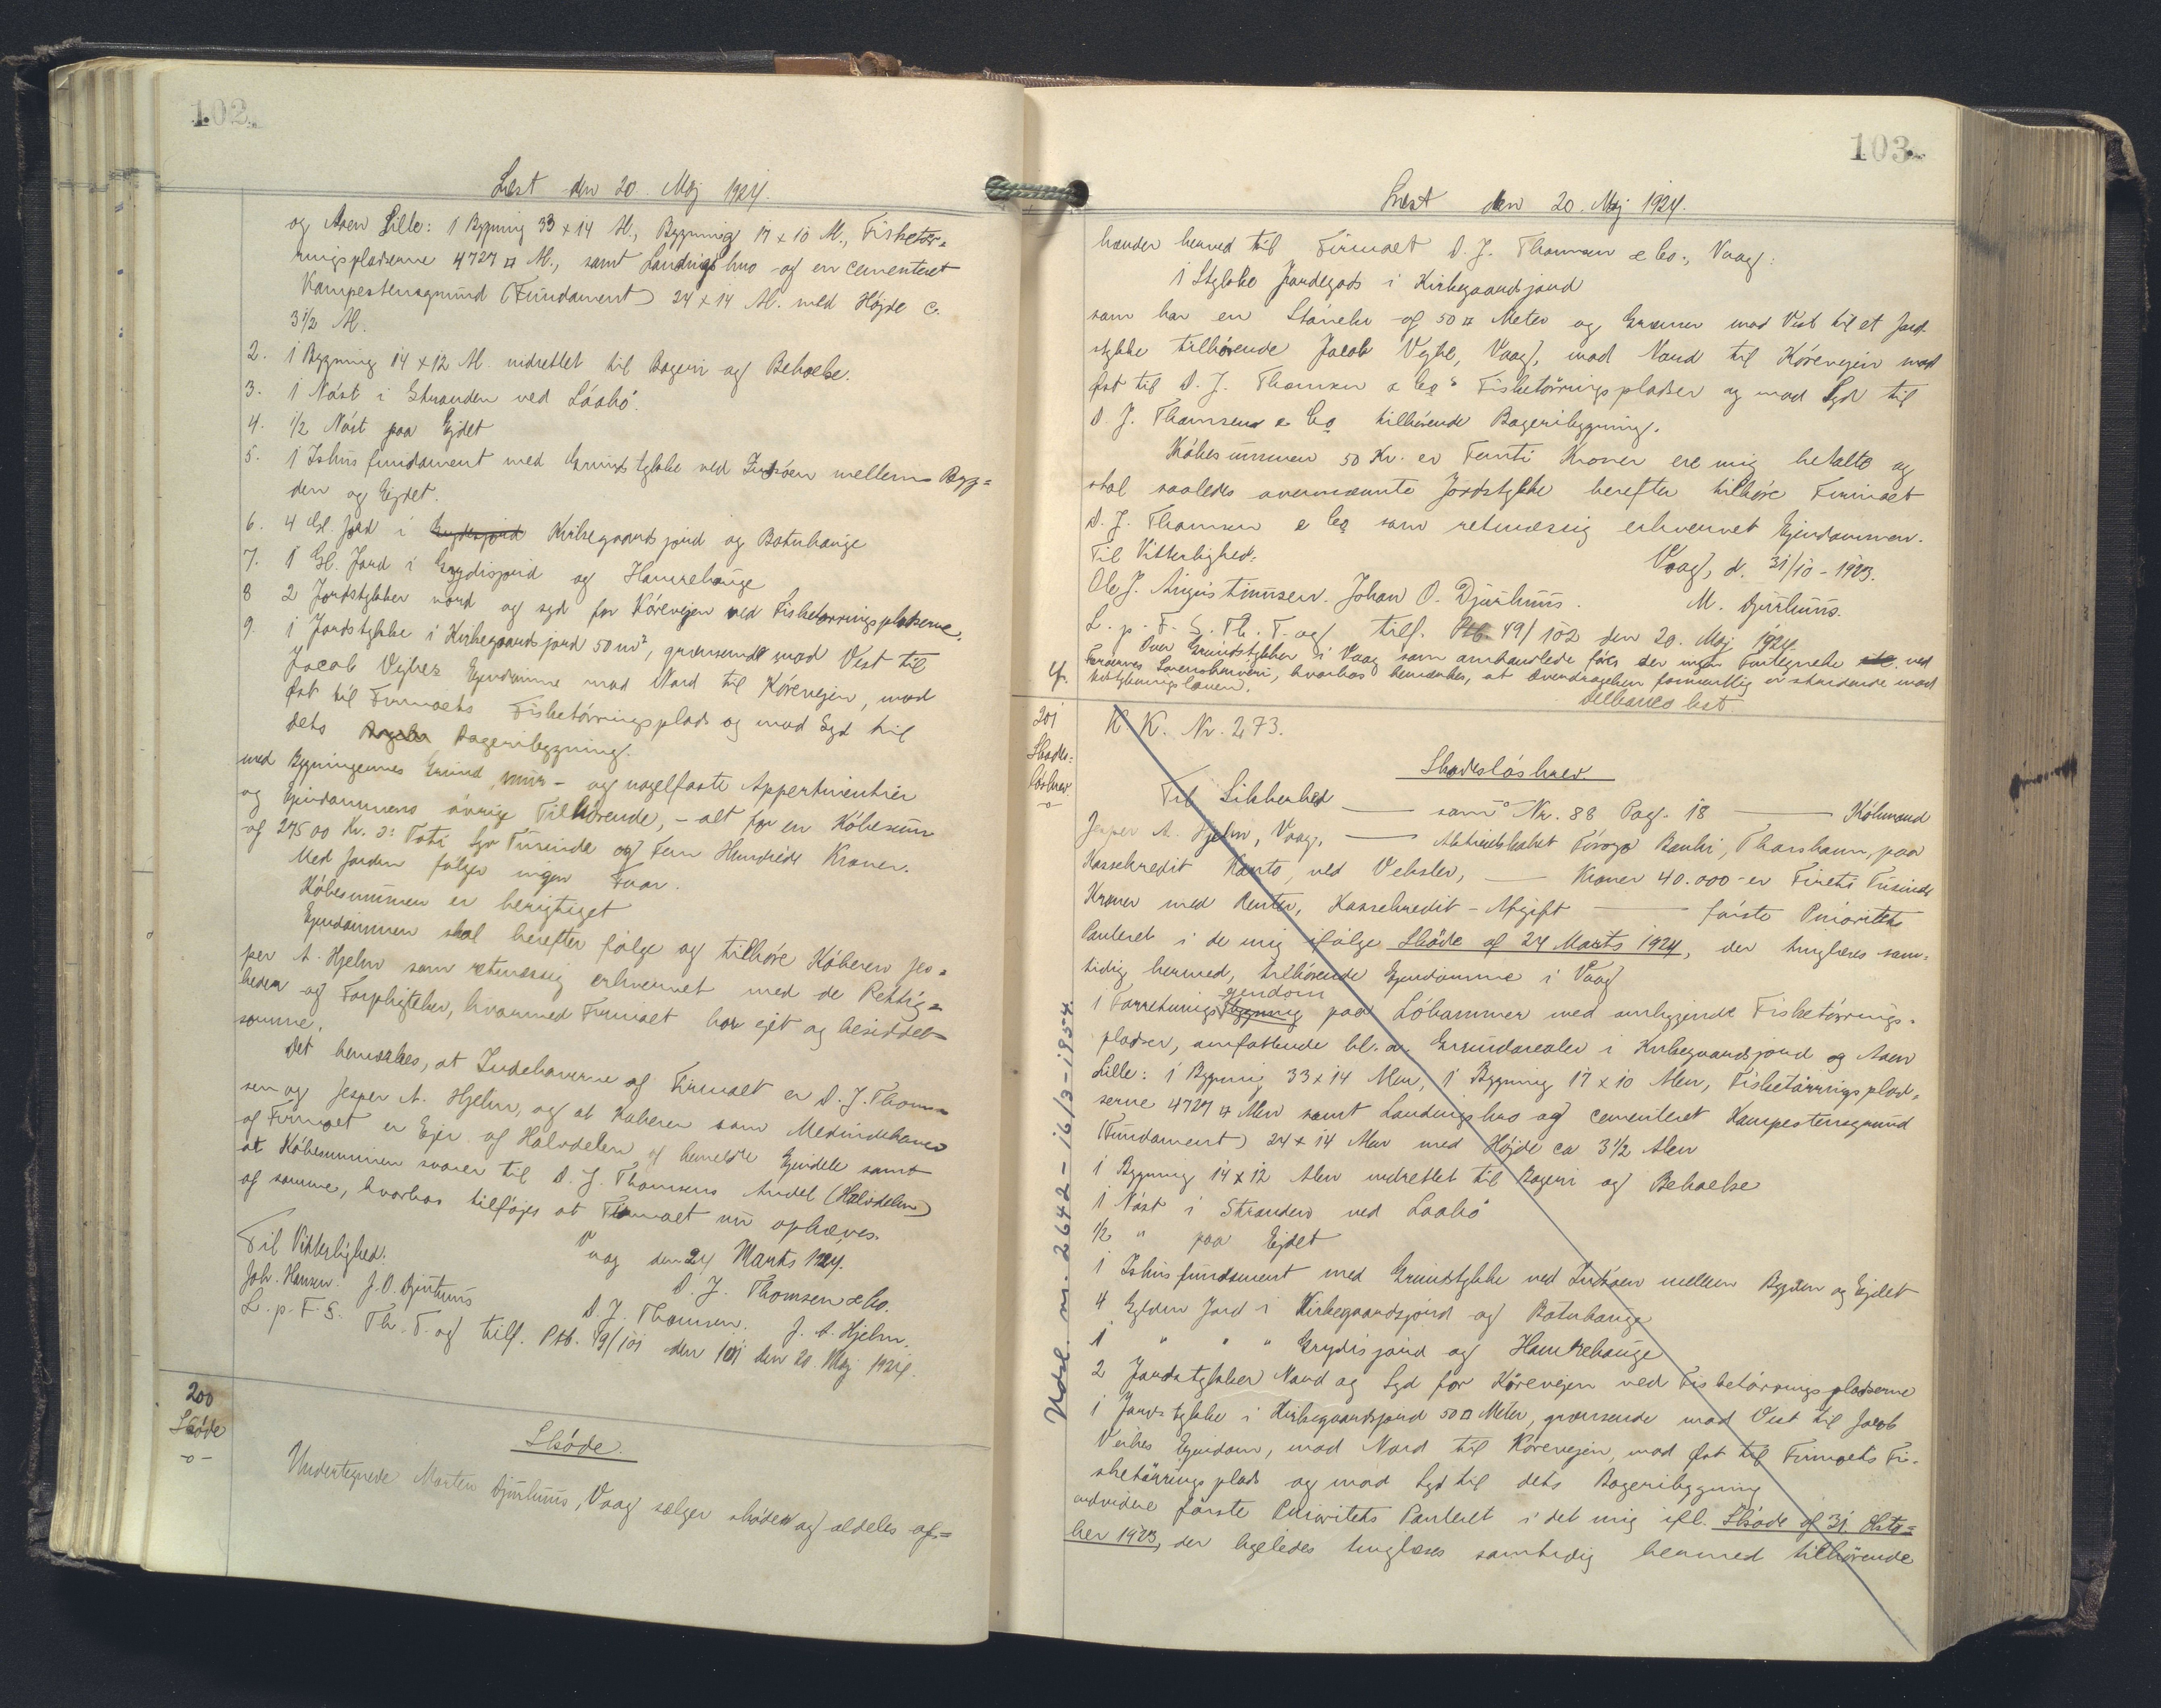 102.
Læst den 20. Maj 1924.
og Aaen Lille: 1 Bygning 33 x 14 Al., Bygning 17 x 10 Al., Fisketør=
ringspladserne 4727 □ Al., samt Landingsbro og en cementeret
Kampestensgrund (Fundament) 24 x 14 Al. med Højde c.
3 1/2 Al.
2. 1 Bygning 14 x 12 Al. indrettet til Bageri og Beboelse.
3. 1 Nöst i Stranden ved Lóahó.
4. 1/2 Nöst paa Ejdet
5. 1 Ishus fundament med Grundstykke ved Indsøen mellem Byg=
den og Ejdet.
6. 4 Gl. Jord i Kirkegaardsjord og Botnhauge
7. 1 Gl. Jord i Grydisjord og Hamrehauge
8 2 Jordstykker nord og syd for Kørevejen ved Fisketørringspladserne.
9. 1 Jordstykke i Kirkegaardsjord 50 m², grænsende mod Vest til
Jacob Vejhes Ejendomme mod Nord til Kørevejen, mod
Øst til Firmaets Fisketørringsplads og mod Syd til
dets Bageribygning.
med Bygningernes Grund, mur- og nagelfaste Appertinentier
og Ejendommens øvrige Tilhørende, - alt for en Købesum
af 27500 Kr. ɔ: Toti Syv Tusinde og Fem Hundrede Kroner.
Med Jorden følger ingen Faar.
Købesummen er berigtiget
Ejendommen skal herefter følge og tilhøre Køberen Jes=
per A. Hjelm som retmæssig erhvervet med de Rettig=
heder og Forpligtelser, hvormed Firmaet har ejet og besiddet
samme.
Det bemærkes, at Indehaverne af Firmaet er D. J. Thom=
sen og Jesper A. Hjelm, og at Køberen som Medindehaver
af Firmaet er Ejer af Halvdelen af bemeldte Ejendele samt
at Købesummen svarer til D. J. Thomsens Andel (Halvdelen)
af samme, hvorhos tilføjes at Firmaet nu ophæves.
Vaag den 24 Marts 1924.
Til Vitterlighed:
D. J. Thomsen & Co.
Joh. Hansen. J. O. Djurhuus
D. J. Thomsen. J. A. Hjelm.
L. p. F. S. Th. T. og tilf. Ptb. 49/101 den 20. Maj 1924.
200
Skøde
-o-
Skøde.
Undertegnede Morten Djurhuus, Vaag sælger skøder og aldeles af=
103.
Læst den 20. Maj 1924.
hænder herved til Firmaet D. J. Thomsen & Co., Vaag:
1 Stykke Jordegods i Kirkegaardsjord
som har en Störrelse af 50 □ Meter og Grænser mod Vest til et Jord
stykke tilhørende Jacob Vejhe, Vaag, mod Nord til Kørevejen mod
Øst til D. J. Thomsen & Co's Fisketørringspladser og mod Syd til
D. J. Thomsens & Co tilhørende Bageribygning.
Købesummen 50 Kr. er Femti Kroner ere mig betalte og
skal saaledes ovennævnte Jordstykke herefter tilhøre Firmaet
D. J. Thomsen & Co som retmæssig erhvervet Ejendommen.
Vaag, d. 31/10 - 1923.
Til Vitterlighed:
M. Djurhuus.
Ole J. Augustinussen. Johan O. Djurhuus.
L. p. F. S. Th. T. og tilf. Ptb. 49/102 den 20. Maj 1924.
Over Grundstykker i Vaag som omhandlede føres der ingen Fortegnelse ved
Færøernes Sorenskriveri, hvorhos bemærkes, at Overdragelsen formentlig er stridende mod
Udstykningsloven.
cfr.
201
Skades=
løsbrev
-o-
K K. Nr. 273.
Skadesløsbrev
Til Sikkerhed — som Nr. 88 Pag. 18 — Købmand
Jesper A. Hjelm, Vaag, — Aktieselskabet Föroya Banki, Thorshavn, paa
Kassekredit Konto, ved Veksler, — Kroner 40.000 er Fireti Tusinde
Kroner med Renter, Kassekredit-Afgift — første Prioritets
Panteret i de mig ifølge Skøde af 24 Marts 1924, der tinglæses sam=
tidig hermed, tilhørende Ejendomme i Vaag
1 Forretningsejendom paa Lóhammer med omliggende Fisketørrings=
pladser, omfattende bl. a. Grundarealer i Kirkegaardsjord og Aaen
Lille: 1 Bygning 33 x 14 Alen, 1 Bygning 17 x 10 Alen, Fisketørringsplad=
serne 4727 □ Alen samt Landingsbro og cementeret Kampestensgrund
(Fundament) 24 x 14 Alen med Højde ca 3 1/2 Alen
1 Bygning 14 x 12 Alen indrettet til Bageri og Beboelse
1 Nöst i Stranden ved Loahó
1/2 " paa Ejdet
1 Ishus fundament med Grundstykke ved Indsøen mellem Bygden og Ejdet
4 Gylden Jord i Kirkegaardsjord og Botnhauge
1 " " " Grydisjord og Hamrehauge
2 Jordstykker Nord og Syd for Kørevejen ved Fisketørringspladserne
1 Jordstykke i Kirkegaardsjord 50 □ Meter, grænsende mod Vest til Jacob
Vejhes Ejendom, mod Nord til Kørevejen, mod Øst til Firmaets Fi=
sketørringsplads og mod Syd til dets Bageribygning
endvidere første Prioritets Panteret i det mig ifl. Skøde af 31 Okto=
ber 1923, der ligeledes tinglæses samtidig hermed tilhørende
Udsl. m. 2642 - 16/3 - 1954.